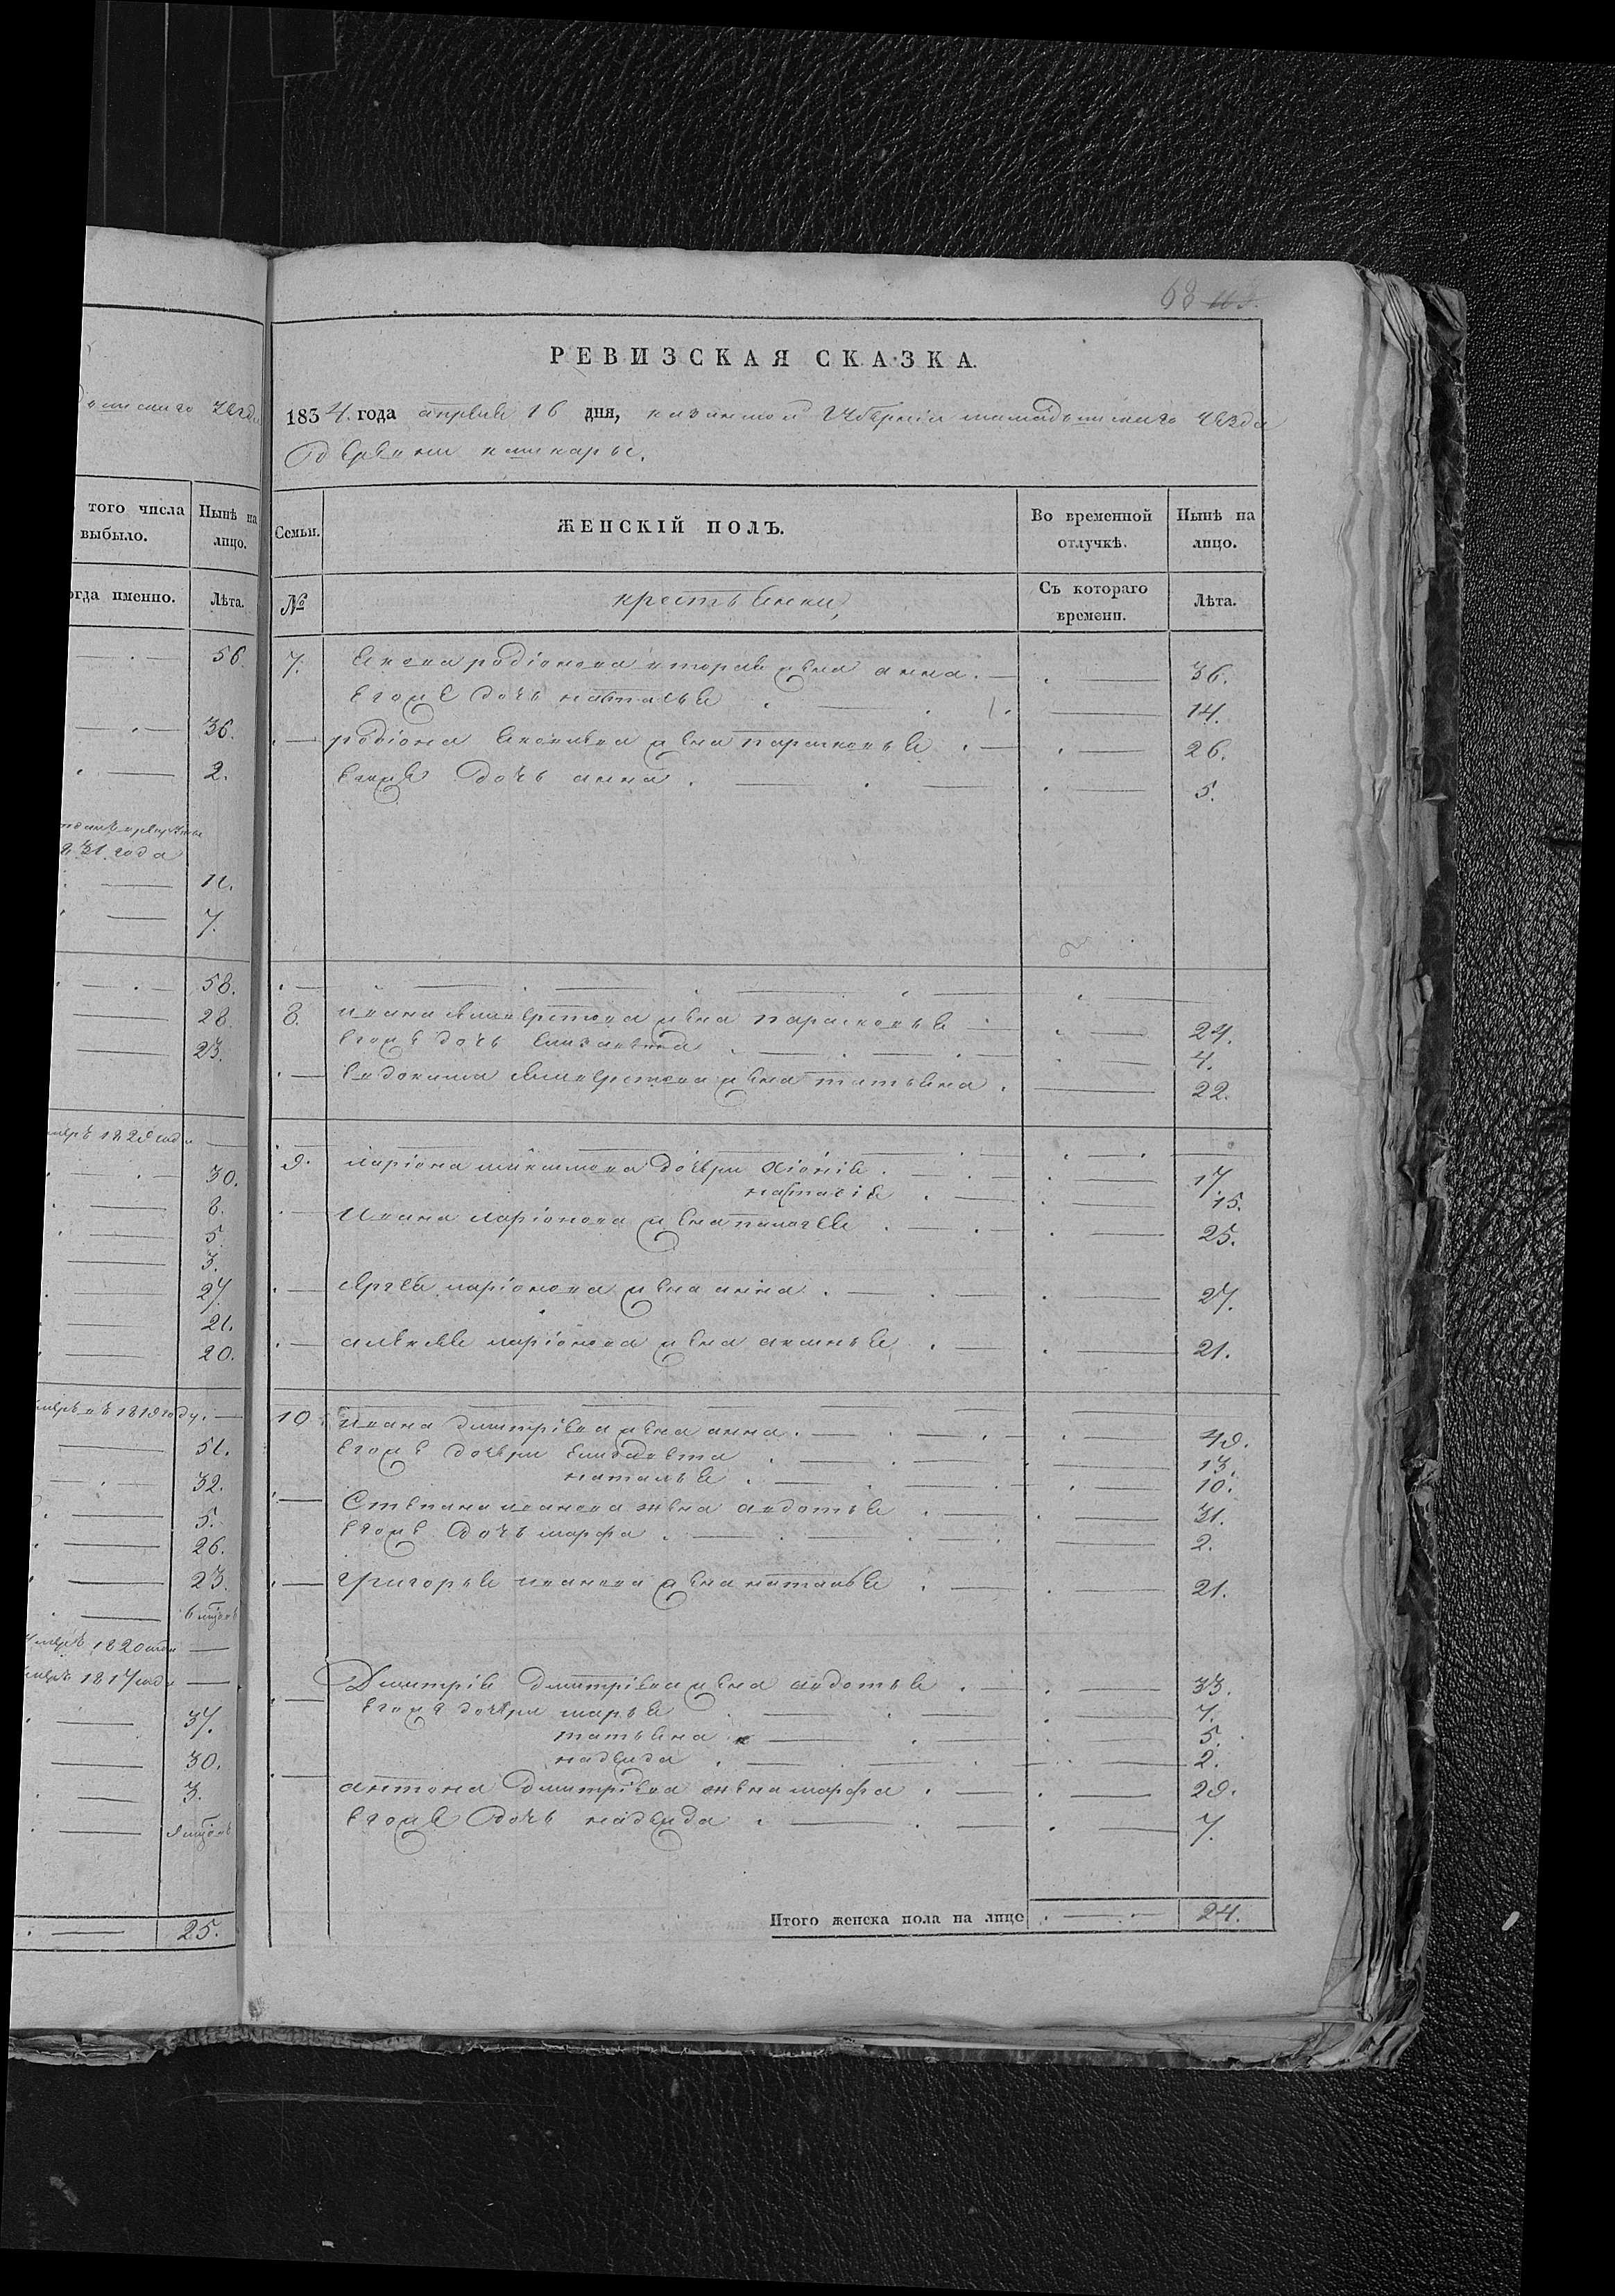 68
РЕВИЗСКАЯ СКАЗКА.
1834. года апреля 16 дня, казанской губерніи мамадышскаго уезда
деревни
того числа
выбыло.
Нынѣ на
лицо.
Семьи.
ЖЕНСКІЙ ПОЛЪ.
Во временной
отлучкѣ.
Нынѣ на
лицо.
огда именно.
Лѣта.
№
крестьянки
Съ котораго
времени.
Лѣта.
56.
36.
2.
31 года
11.
7.
58.
28.
23.
1828 года
30.
8.
5.
3.
27.
21.
20.
1818 году.
51.
32.
5.
26.
23.
6
1820 года
1817 года
37.
30.
3.
25.
7. родіонова вторая жена анна 36.
его же дочь наталья 14.
родіона жена парасковья 26.
его же дочь анна 5.
8. ивана жена парасковья 24.
его же дочь елизавета 4.
евдокима жена татьяна 22.
9. ларіона дочери 17.
наталія 15.
ивана ларіонова жена пелагея 25.
сергея ларіонова жена анна 27.
алексея ларіонова жена аксинья 21.
10. ивана дмитріева жена анна 49.
его же дочери елизавета 13.
наталья 10.
Степана иванова жена авдотья 31.
его же дочь марфа 2.
григорья иванова жена наталья 21.
Дмитрія дмитріева жена авдотья 33.
его же дочери марья 7.
татьяна 5.
надежда 2.
антона дмитріева жена марфа 29.
его же дочь надежда 7.
Итого женска пола на лице 24.